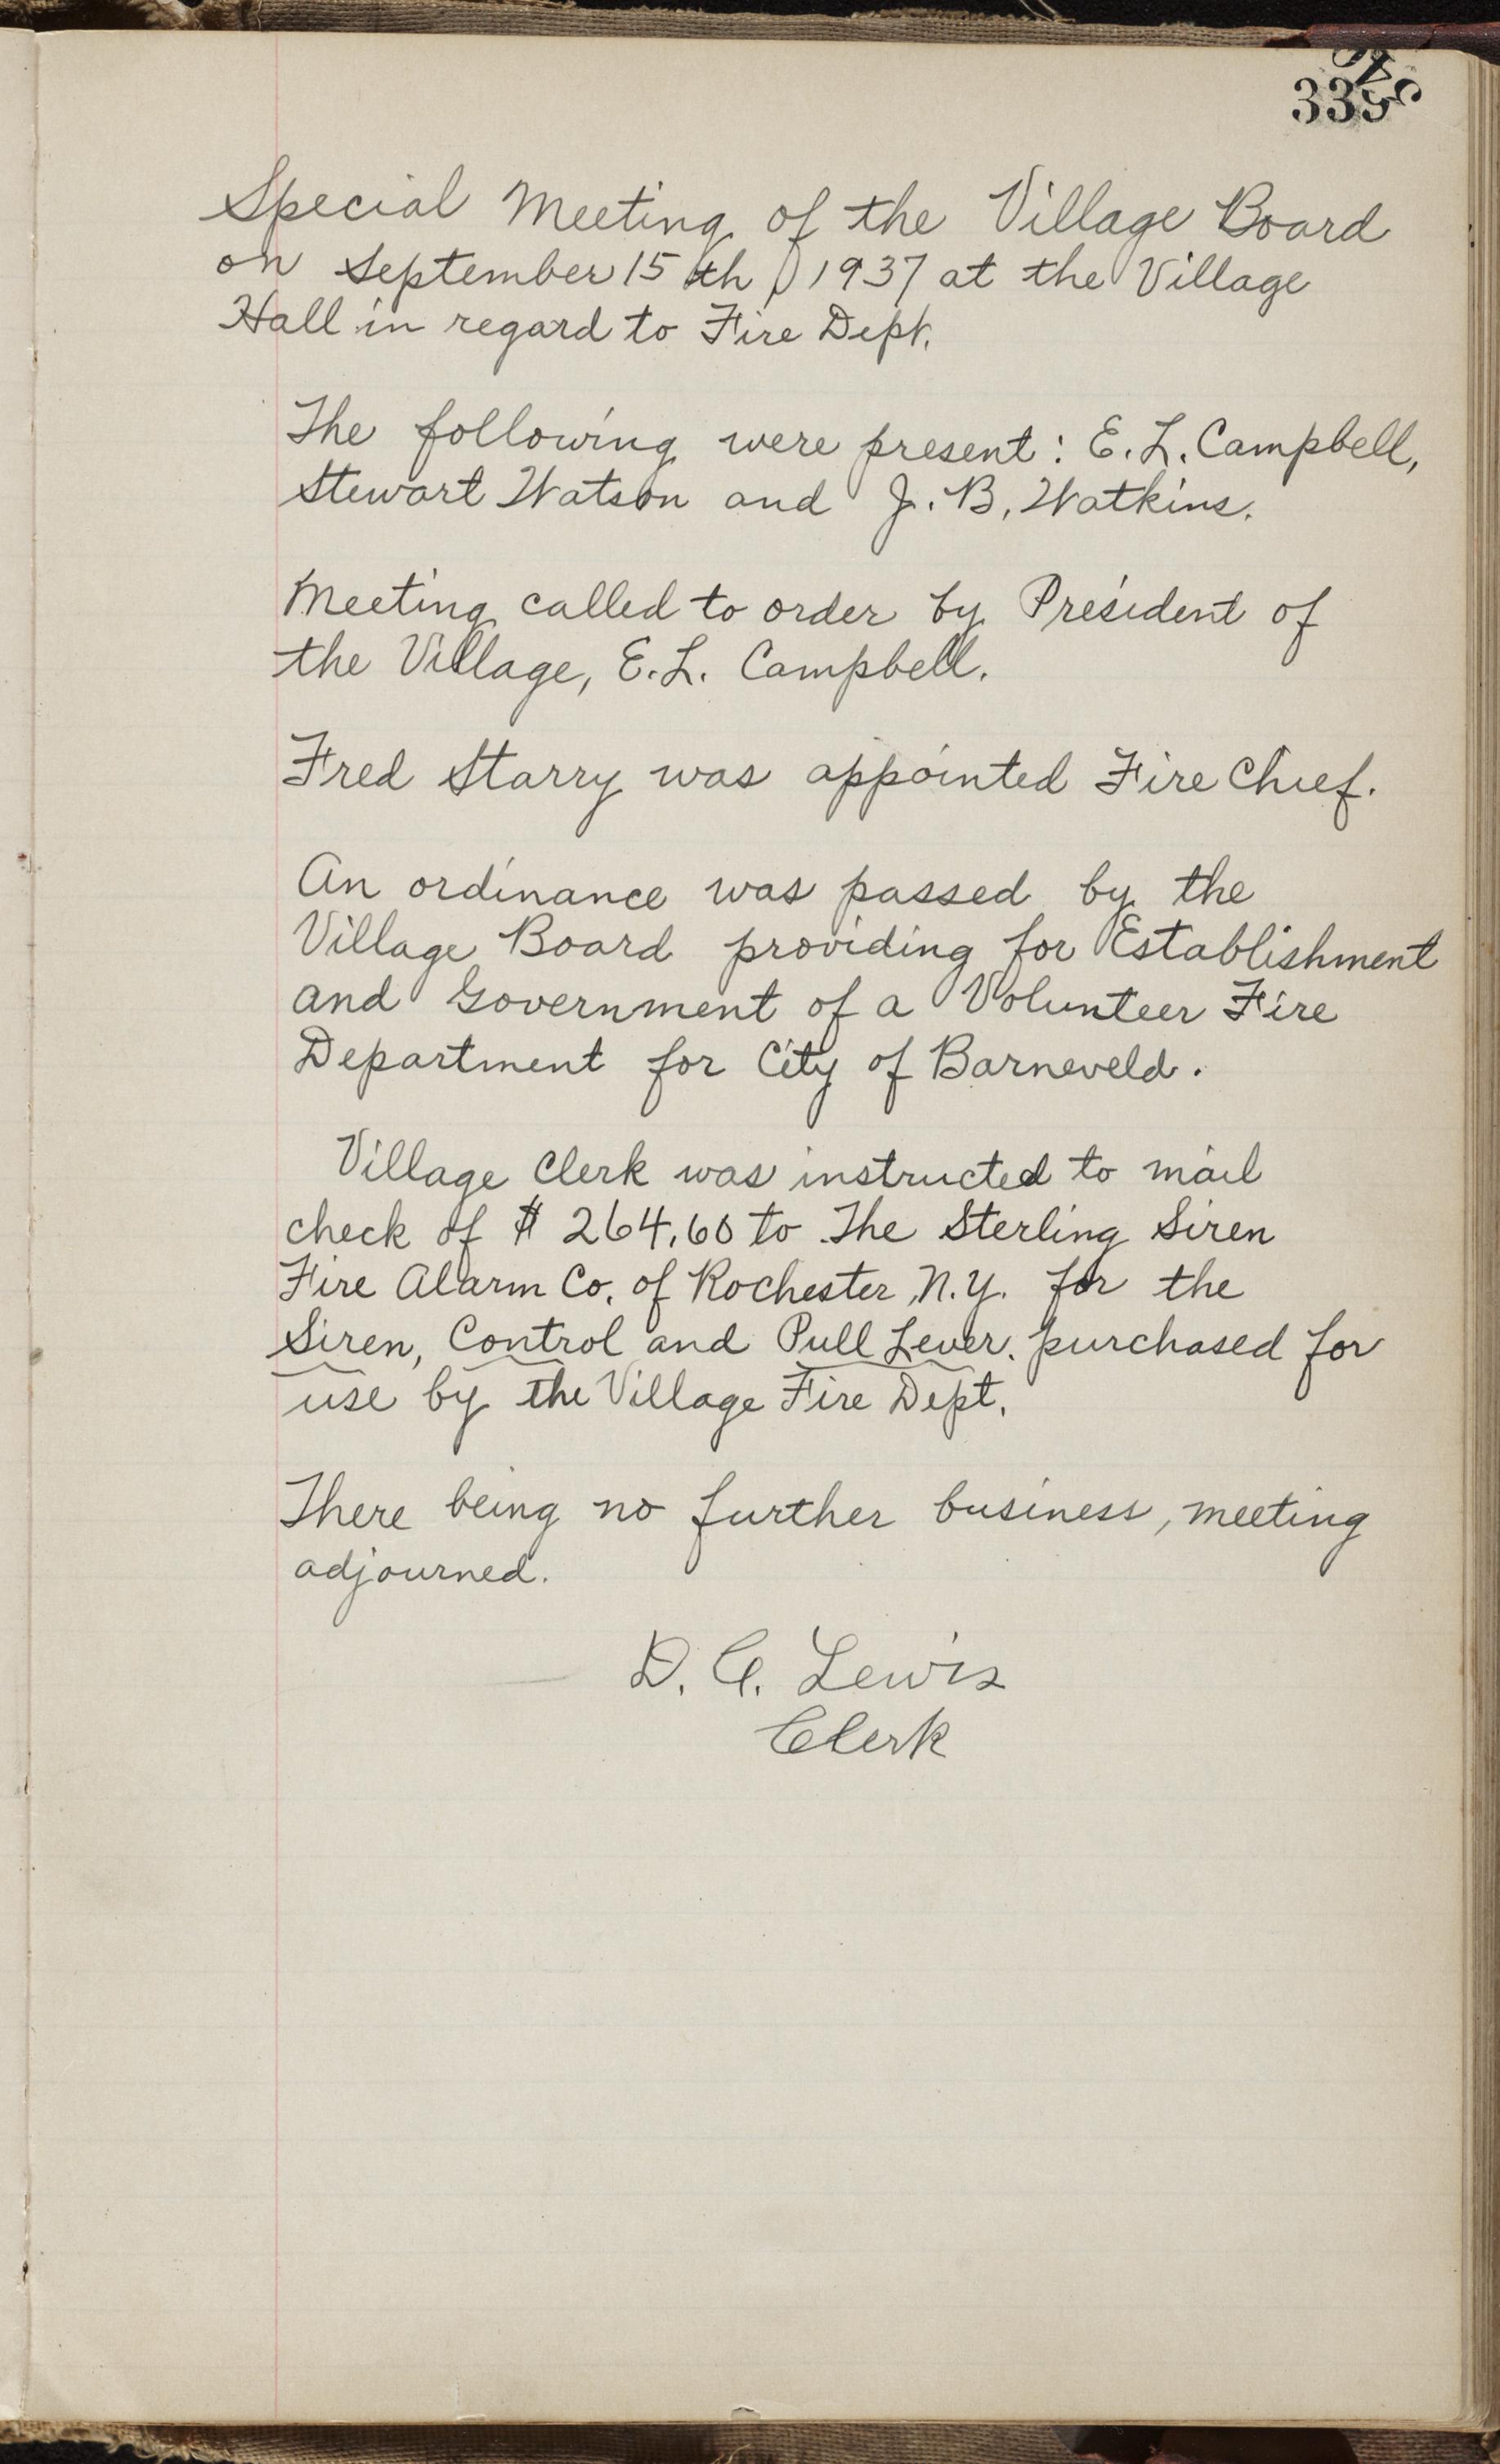 339
Special Meeting of the Village Board
on September 15th, 1937 at the Village
Hall in regard to Fire Dept.
The following were present: E. L. Campbell,
Stewart Watson and J. B. Watkins.
Meeting called to order by President of
the Village, E. L. Campbell.
Fred Starry was appointed Fire Chief.
An ordinance was passed by the
Village Board providing for Establishment
and Government of a Volunteer Fire
Department for City of Barneveld.
Village Clerk was instructed to mail
check of $ 264.60 to The Sterling Siren
Fire Alarm Co. of Rochester, N.Y. for the
Siren, Control and Pull Lever. purchased for
use by the Village Fire Dept.
There being no further business, meeting
adjourned.
D. C. Lewis
Clerk